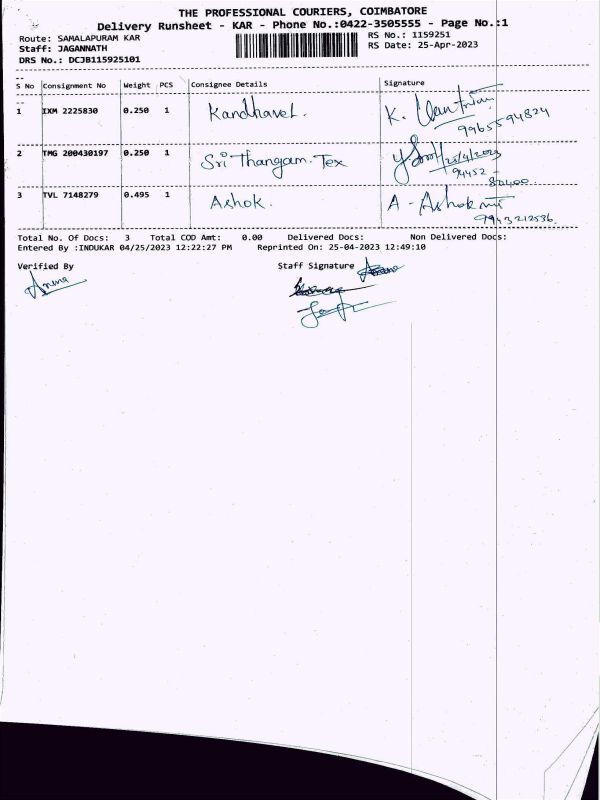 THE PROFESSIONAL COURIERS, COIMBATORE
Delivery Runsheet - KAR - Phone No.:0422-3505555 - Page No.:1
Route: SAMALAPURAM KAR RS No.: I159251
Staff: JAGANNATH RS Date: 25-Apr-2023
DRS No.: DCJB115925101
S No Consignment No Weight PCS Consignee Details Signature
1 IXM 2225830 0.250 1 Kandhavel. K.
9965594824
2 TMG 200430197 0.250 1 Sri Thangam. Tex 25/4/2023
94452 -
80400
3 TVL 7148279 0.495 1 Ashok. A - Ashok
9943212536.
Total No. Of Docs: 3 Total COD Amt: 0.00 Delivered Docs: Non Delivered Docs:
Entered By :INDUKAR 04/25/2023 12:22:27 PM Reprinted On: 25-04-2023 12:49:10
Verified By Staff Signature